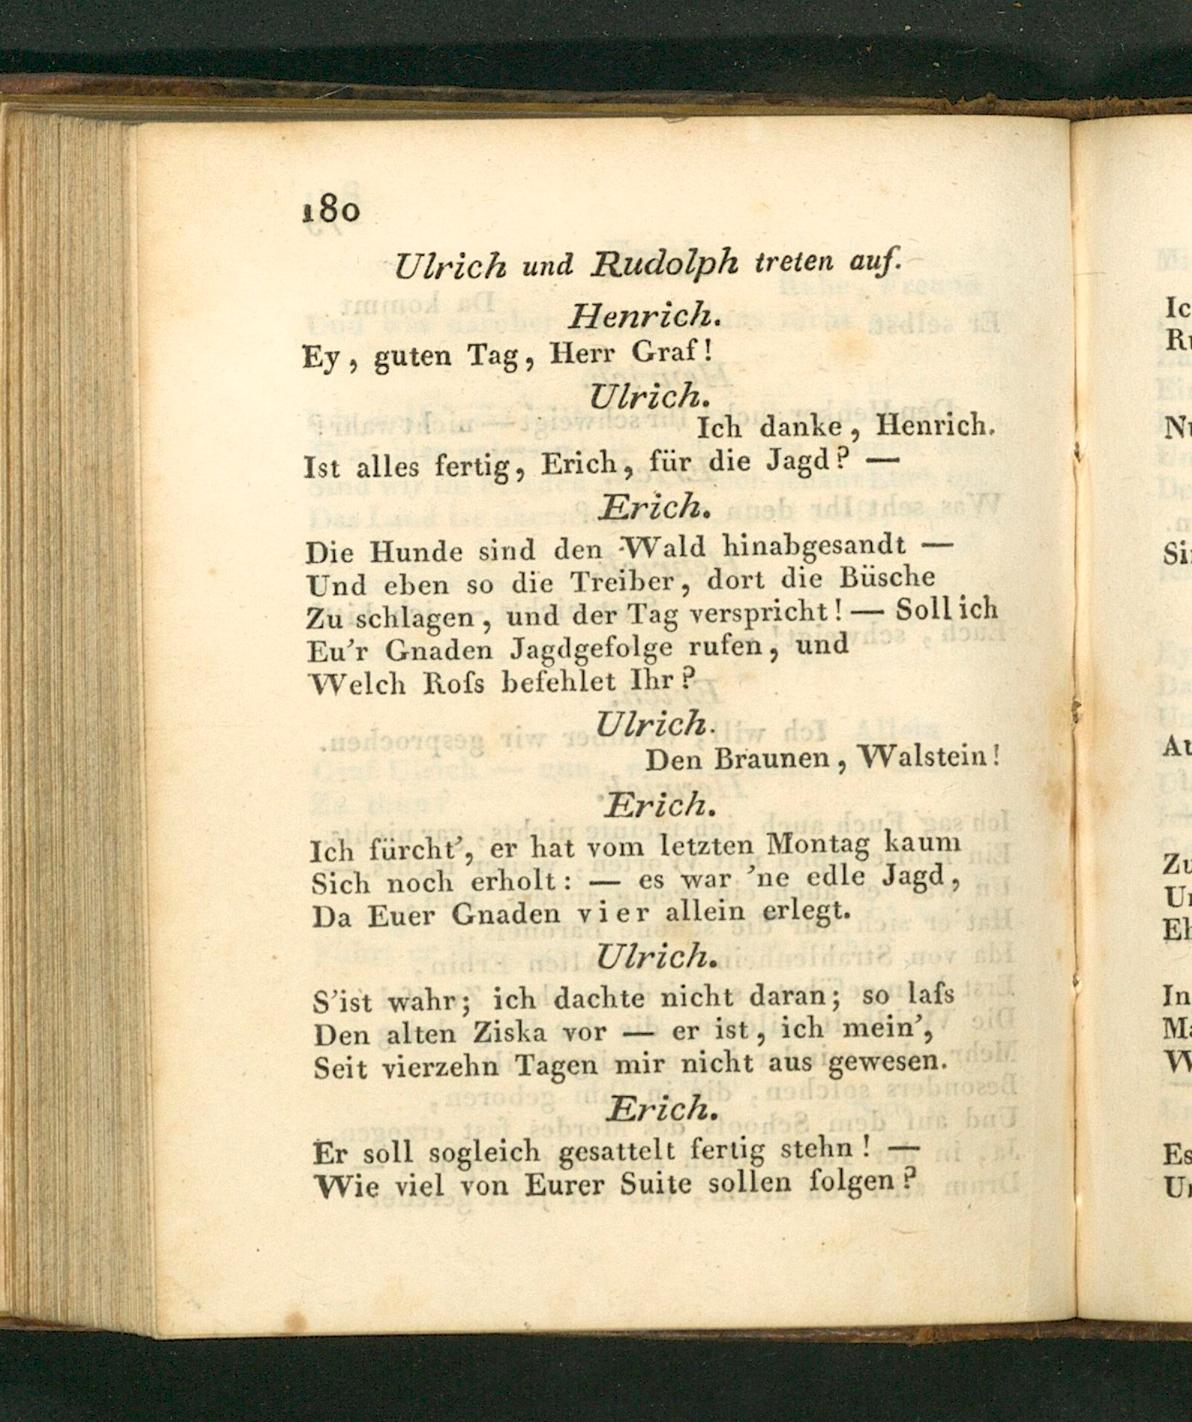 180
Ulrich und Rudolph treten auf.
Henrich.
Ey, guten Tag, Herr Graf!
Ulrich.
Ich danke, Henrich.
Ist alles fertig, Erich, für die Jagd? —
Erich.
Die Hunde sind den Wald hinabgesandt —
Und eben so die Treiber, dort die Büsche
Zu schlagen, und der Tag verspricht! — Soll ich
Eu'r Gnaden Jagdgefolge rufen, und
Welch Roſs befehlet Ihr?
Ulrich.
Den Braunen, Walstein!
Erich.
Ich fürcht', er hat vom letzten Montag kaum
Sich noch erholt: — es war 'ne edle Jagd,
Da Euer Gnaden vier allein erlegt.
Ulrich.
S'ist wahr; ich dachte nicht daran; so laſs
Den alten Ziska vor — er ist, ich mein',
Seit vierzehn Tagen mir nicht aus gewesen.
Erich.
Er soll sogleich gesattelt fertig stehn! —
Wie viel von Eurer Suite sollen folgen?